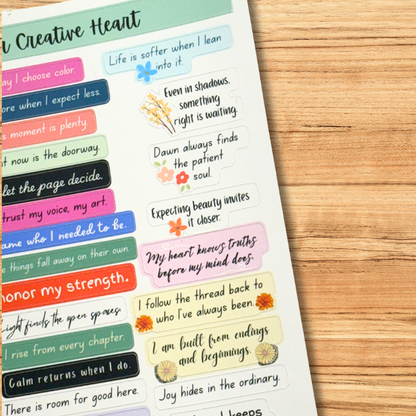 r Creative Heart
ay I choose color.
ore when I expect less.
s moment is plenty.
t now is the doorway.
let the page decide.
trust my voice, my art.
ame who I needed to be.
e things fall away on their own.
honor my strength.
ight finds the open spaces.
I rise from every chapter.
Calm returns when I do.
There is room for good here.
Life is softer when I lean
into it.
Even in shadows,
something
right is waiting.
Dawn always finds
the patient
soul.
Expecting beauty invites
it closer.
My heart knows truths
before my mind does.
I follow the thread back to
who I've always been.
I am built from endings
and beginnings.
Joy hides in the ordinary.
keeps